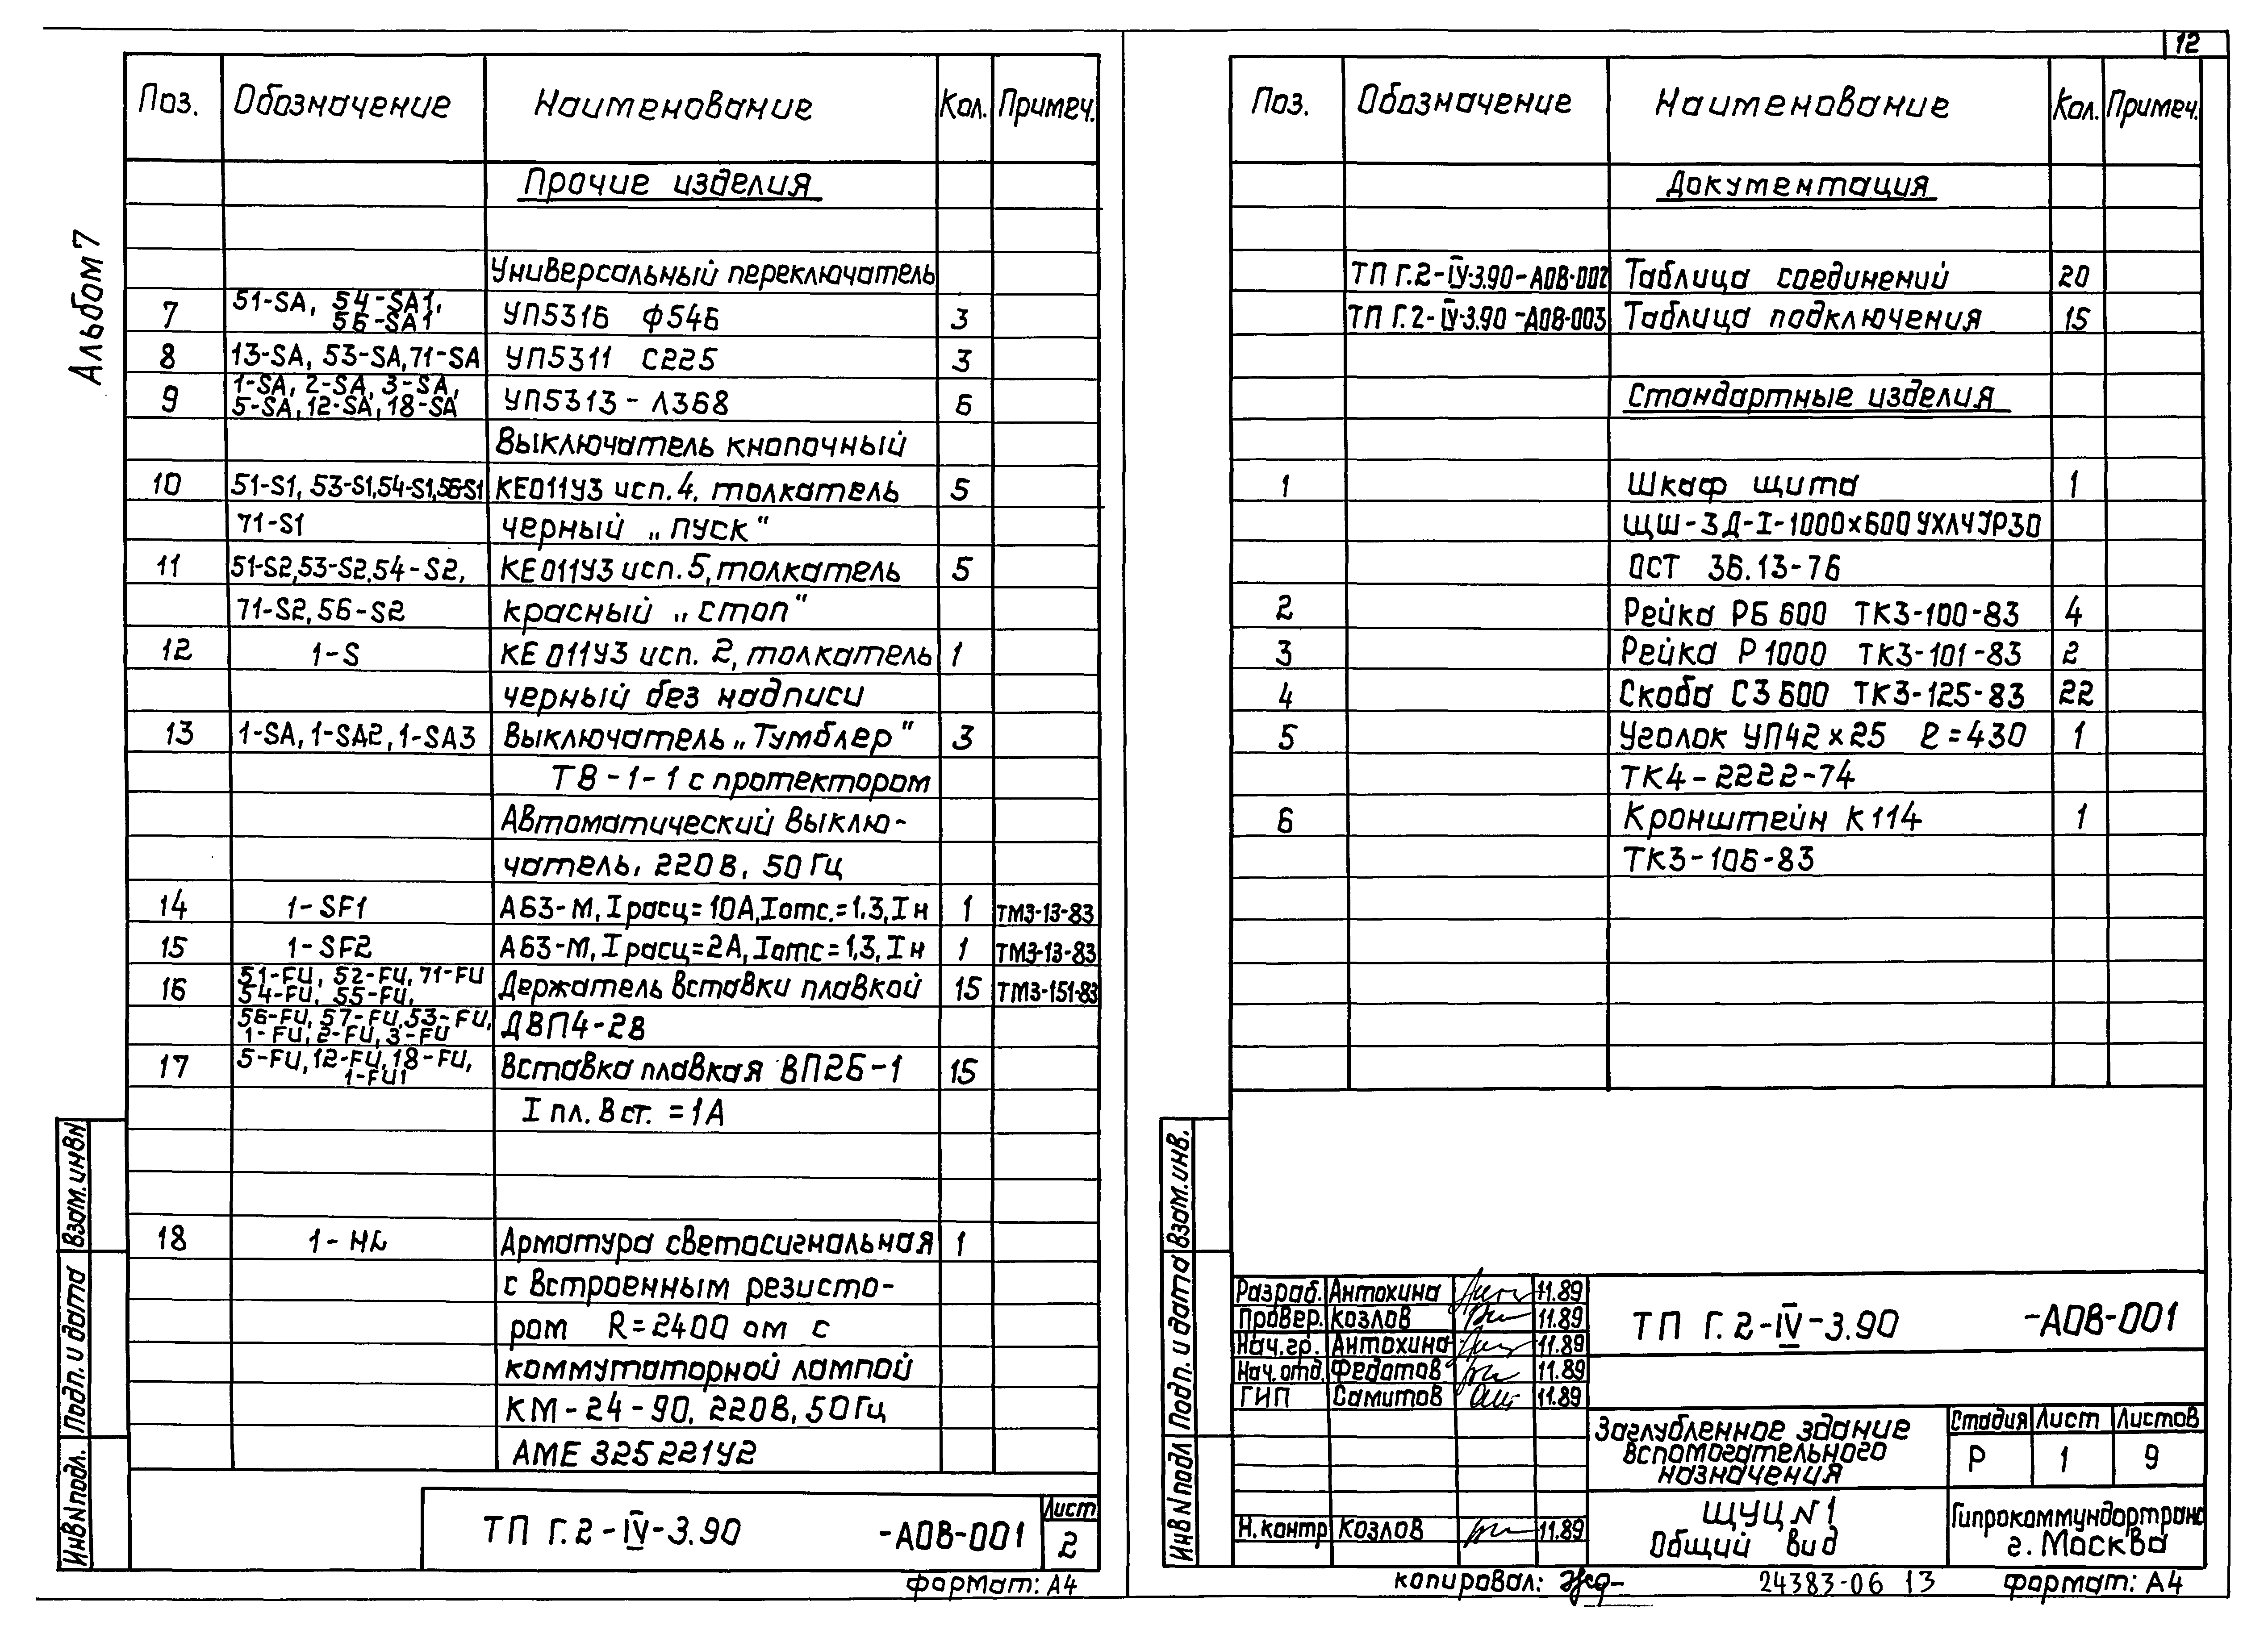 Альбом 7
Поз. Обозначение Наименование Кол. Примеч.
Прочие изделия
Универсальный переключатель
7 51-SA, 54-SA1, 56-SA1 УП5316 Ф546 3
8 13-SA, 53-SA, 71-SA УП5311 С225 3
9 1-SA, 2-SA, 3-SA, 5-SA, 12-SA, 18-SA УП5313-Л368 6
Выключатель кнопочный
10 51-S1, 53-S1, 54-S1, 56-S1 КЕ011У3 исп. 4, толкатель 5
71-S1 черный „пуск"
11 51-S2, 53-S2, 54-S2, КЕ011У3 исп. 5, толкатель 5
71-S2, 56-S2 красный „стоп"
12 1-S КЕ011У3 исп. 2, толкатель 1
черный без надписи
13 1-SA, 1-SA2, 1-SA3 Выключатель „Тумблер" 3
ТВ-1-1 с протектором
Автоматический выклю-
чатель, 220В, 50Гц
14 1-SF1 А63-М, I расц=10А, Iотс.=1.3, Iн 1 ТМ3-13-83
15 1-SF2 А63-М, I расц=2А, Iотс=1,3, Iн 1 ТМ3-13-83
16 51-FU, 52-FU, 71-FU 54-FU, 55-FU, Держатель вставки плавкой 15 ТМ3-151-83
56-FU, 57-FU, 53-FU, 1-FU, 2-FU, 3-FU ДВП4-2В
17 5-FU, 12-FU, 18-FU, 1-FU1 Вставка плавкая ВП2Б-1 15
I пл. вст. = 1А
18 1-HL Арматура светосигнальная 1
с встроенным резисто-
ром R=2400 ом с
коммутаторной лампой
КМ-24-90, 220В, 50Гц
АМЕ 325221У2
Взам. инв N
Подп. и дата
Инв N подл.
ТП Г.2-IV-3.90 -АОВ-001
Лист
2
формат: А4
12
Поз. Обозначение Наименование Кол. Примеч.
Документация
ТП Г.2-IV-3.90-АОВ-002 Таблица соединений 20
ТП Г.2-IV-3.90-АОВ-003 Таблица подключения 15
Стандартные изделия
1 Шкаф щита 1
ЩШ-3Д-I-1000х600 УХЛ4 IР30
ОСТ 36.13-76
2 Рейка РБ 600 ТК3-100-83 4
3 Рейка Р1000 ТК3-101-83 2
4 Скоба С3 600 ТК3-125-83 22
5 Уголок УП42х25 ℓ=430 1
ТК4-2222-74
6 Кронштейн К114 1
ТК3-106-83
Взам. инв.
Подп. и дата
Инв N подл
Разраб. Антохина 11.89
Провер. Козлов 11.89
Нач. гр. Антохина 11.89
Нач. отд. Федотов 11.89
ГИП Самитов 11.89
Н. контр Козлов 11.89
ТП Г.2-IV-3.90 -АОВ-001
Заглубленное здание
вспомогательного
назначения
Стадия Лист Листов
Р 1 9
ЩУЦ N1
Общий вид
Гипрокоммундортранс
г. Москва
копировал:
24383-06 13
формат: А4